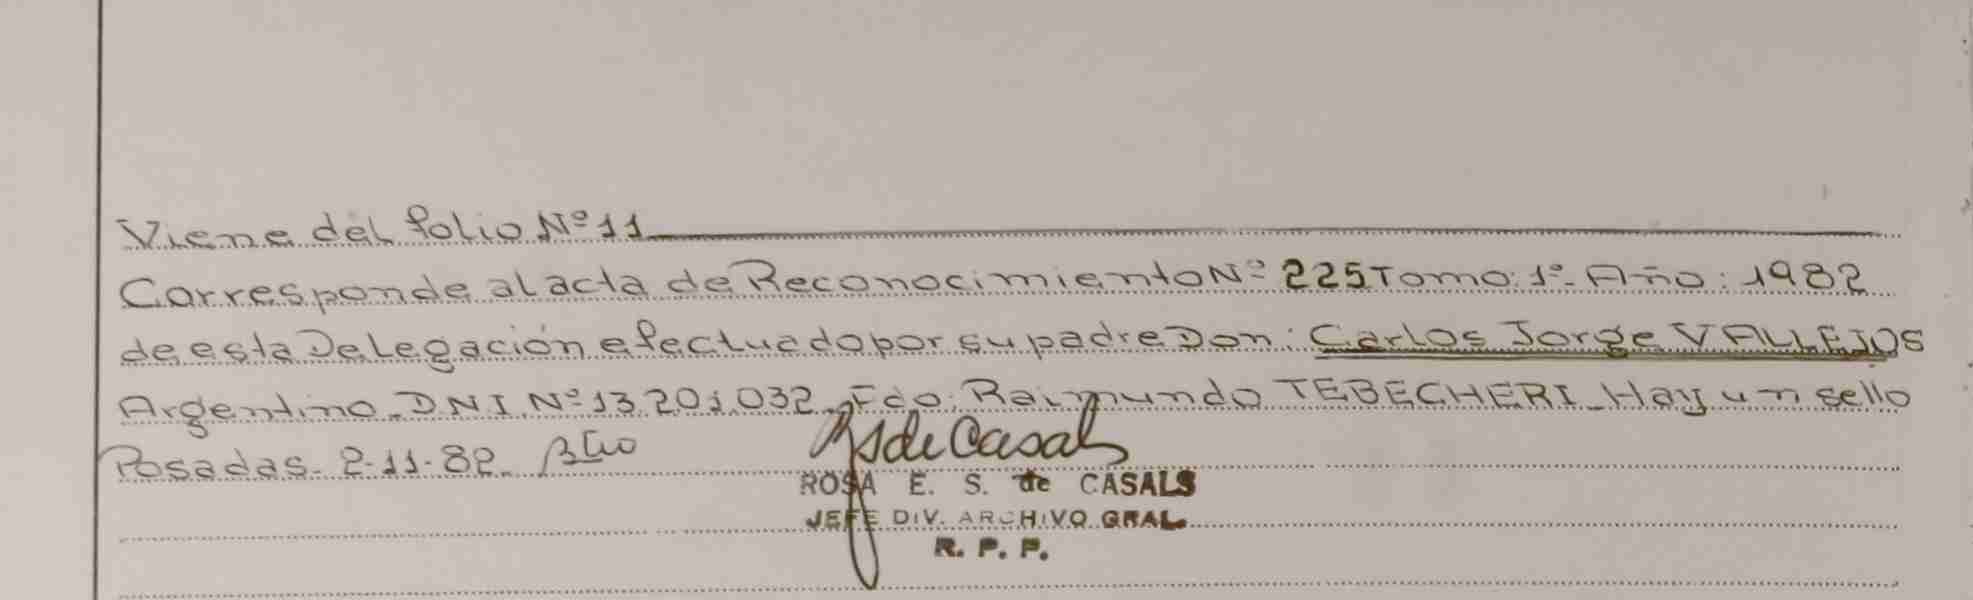 Viene del folio Nº 11
Corresponde al acta de Reconocimiento Nº 225 Tomo: 1º- Año: 1982
de esta Delegación efectuado por su padre Don: Carlos Jorge VALLEJOS
Argentino. DNI. Nº 13.201.032. Fdo. Raimundo TEBECHERI_ Hay un sello
Posadas. 2-11-82.
ROSA E. S. de CASALS
JEFE DIV. ARCHIVO GRAL.
R. P. P.